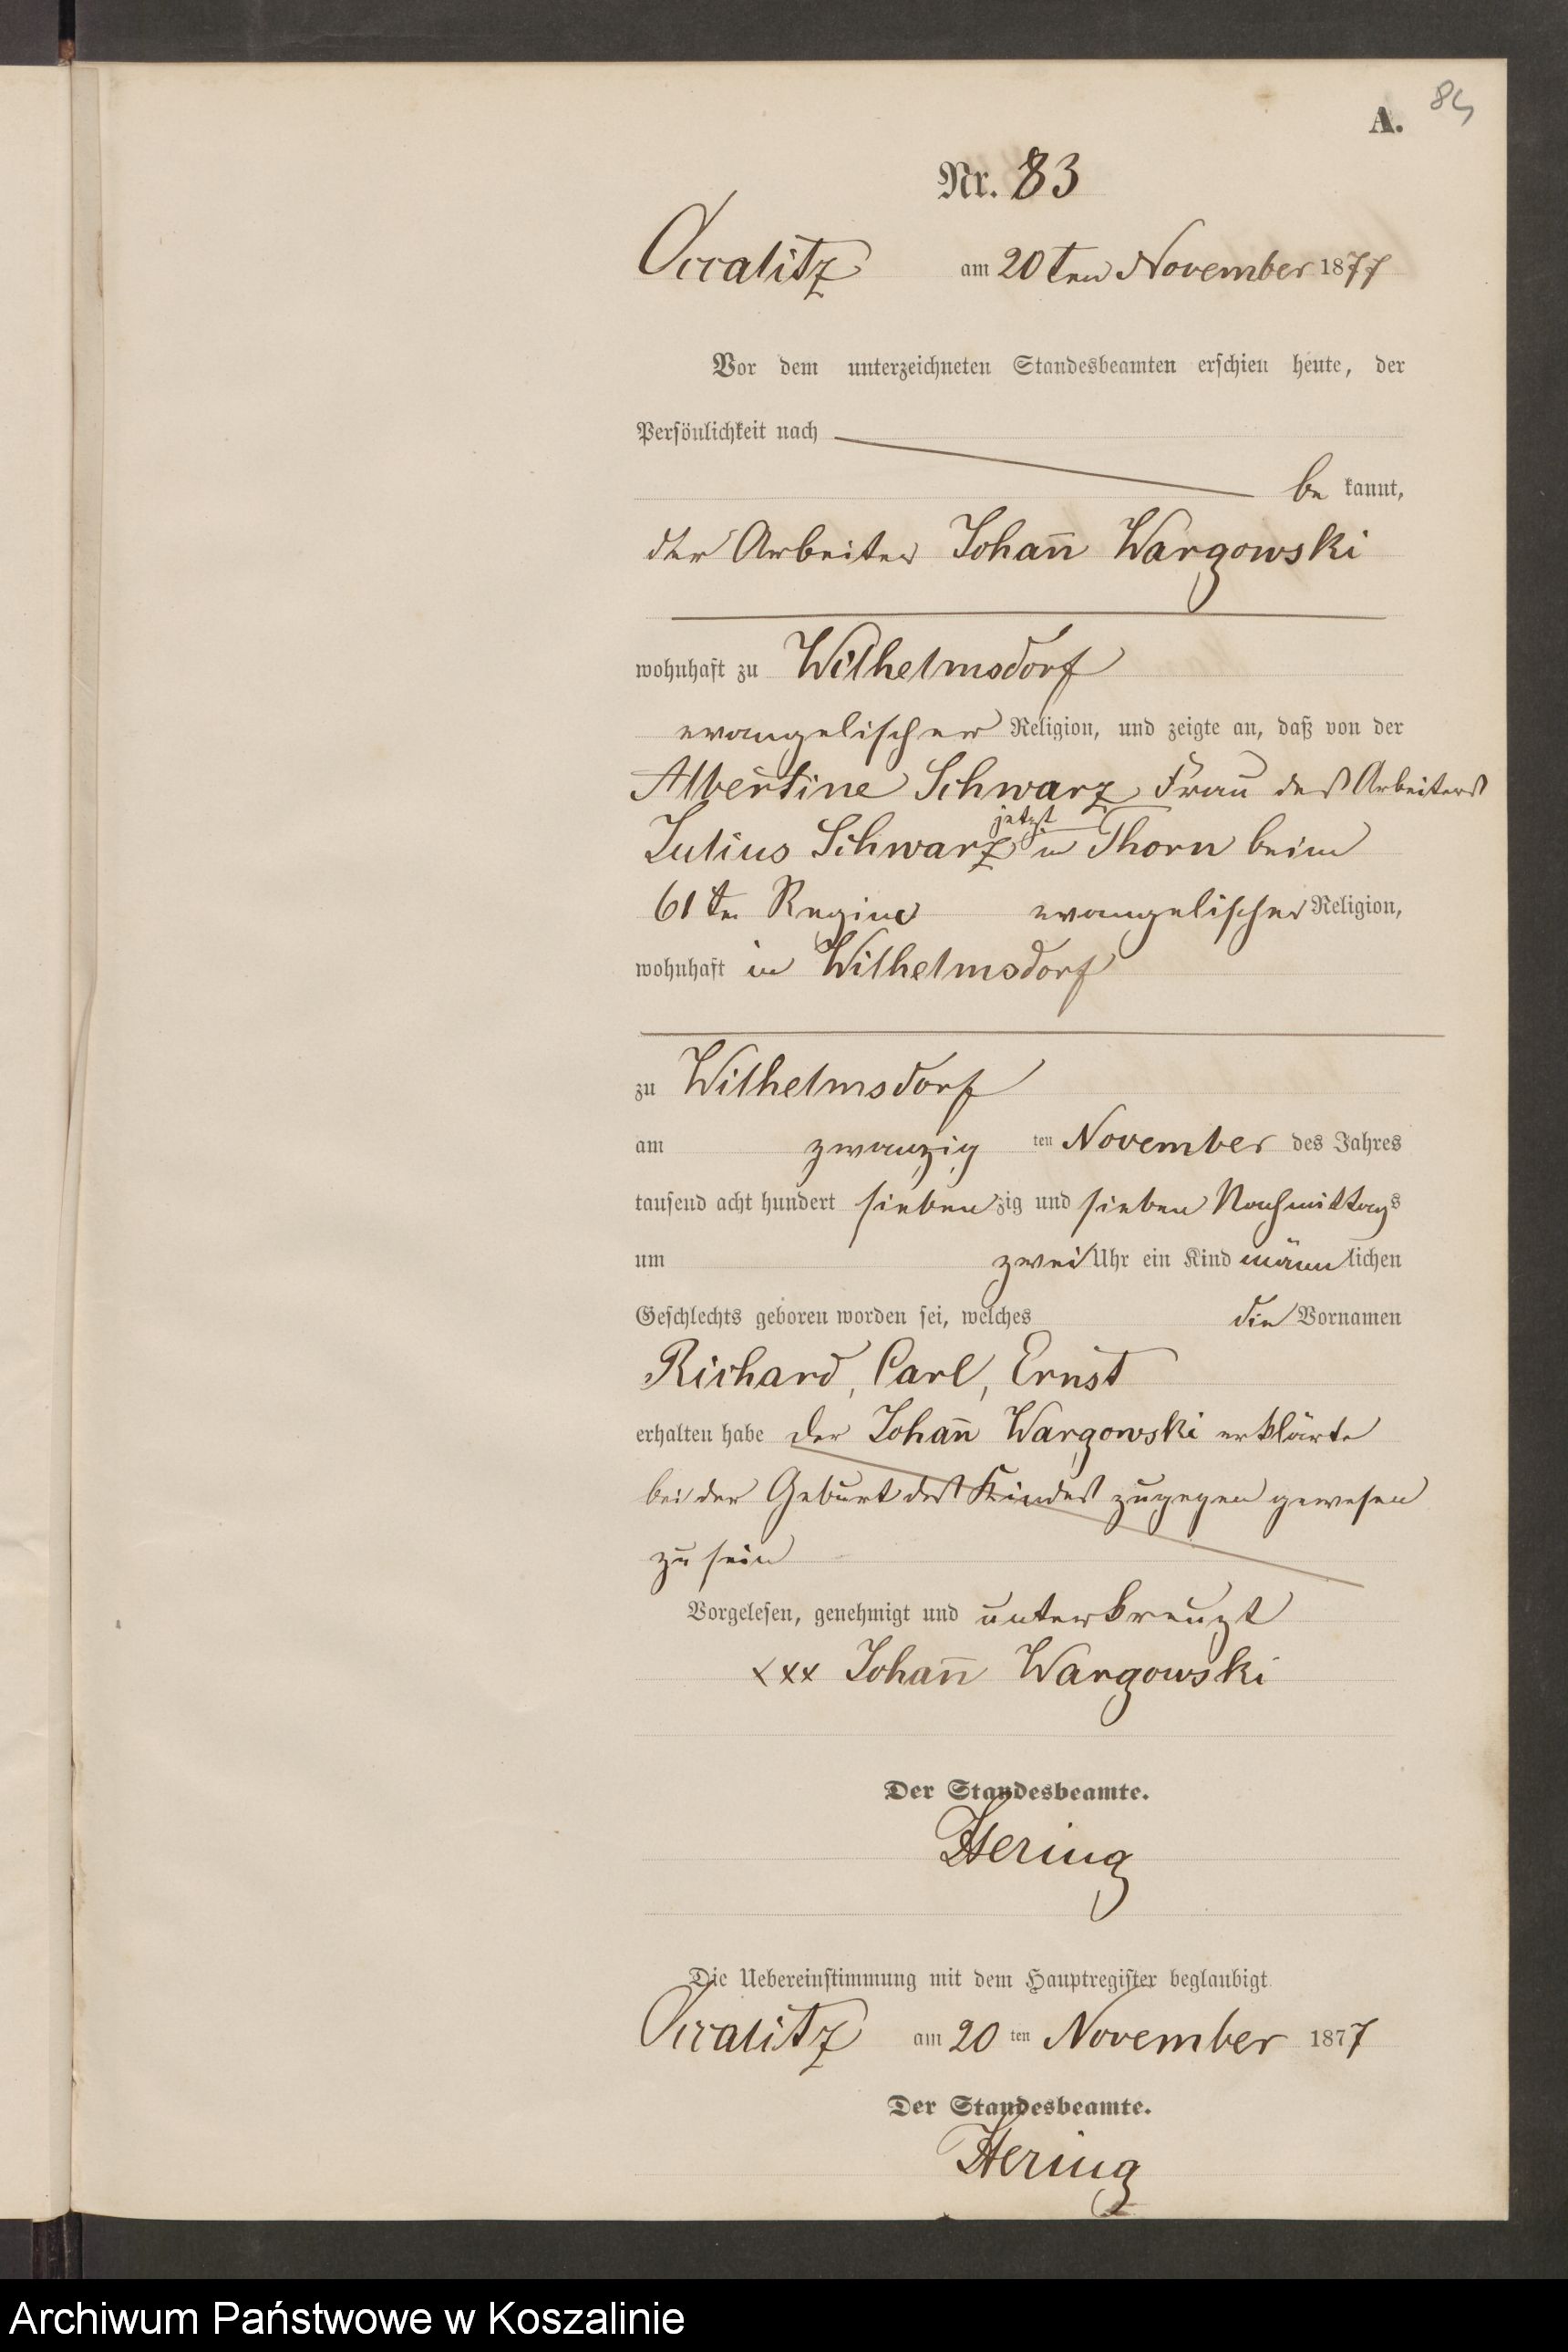 A.
84
Nr. 83
Occalitz am 20ten November 1877
Vor dem unterzeichneten Standesbeamten erschien heute, der
Persönlichkeit nach
be kannt,
der Arbeiter Johan̄ Wargowski
wohnhaft zu Wilhelmsdorf
evangelischer Religion, und zeigte an, daß von der
Albertine Schwarz Frau des Arbeiters
Julius Schwarz jetzt in Thorn beim
61ten Regim evangelischer Religion,
wohnhaft in Wilhelmsdorf
zu Wilhelmsdorf
am zwanzig ten November des Jahres
tausend acht hundert siebenzig und sieben Nachmittags
um zwei Uhr ein Kind männlichen
Geschlechts geboren worden sei, welches die Vornamen
Richard, Carl, Ernst
erhalten habe der Johan̄ Wargowski erklärte
bei der Geburt des Kindes zugegen gewesen
zu sein
Vorgelesen, genehmigt und unterkreuzt
xxx Johan̄ Wargowski
Der Standesbeamte.
Hering
Die Uebereinstimmung mit dem Hauptregister beglaubigt
Occalitz am 20 ten November 1877
Der Standesbeamte.
Hering
Archiwum Państwowe w Koszalinie